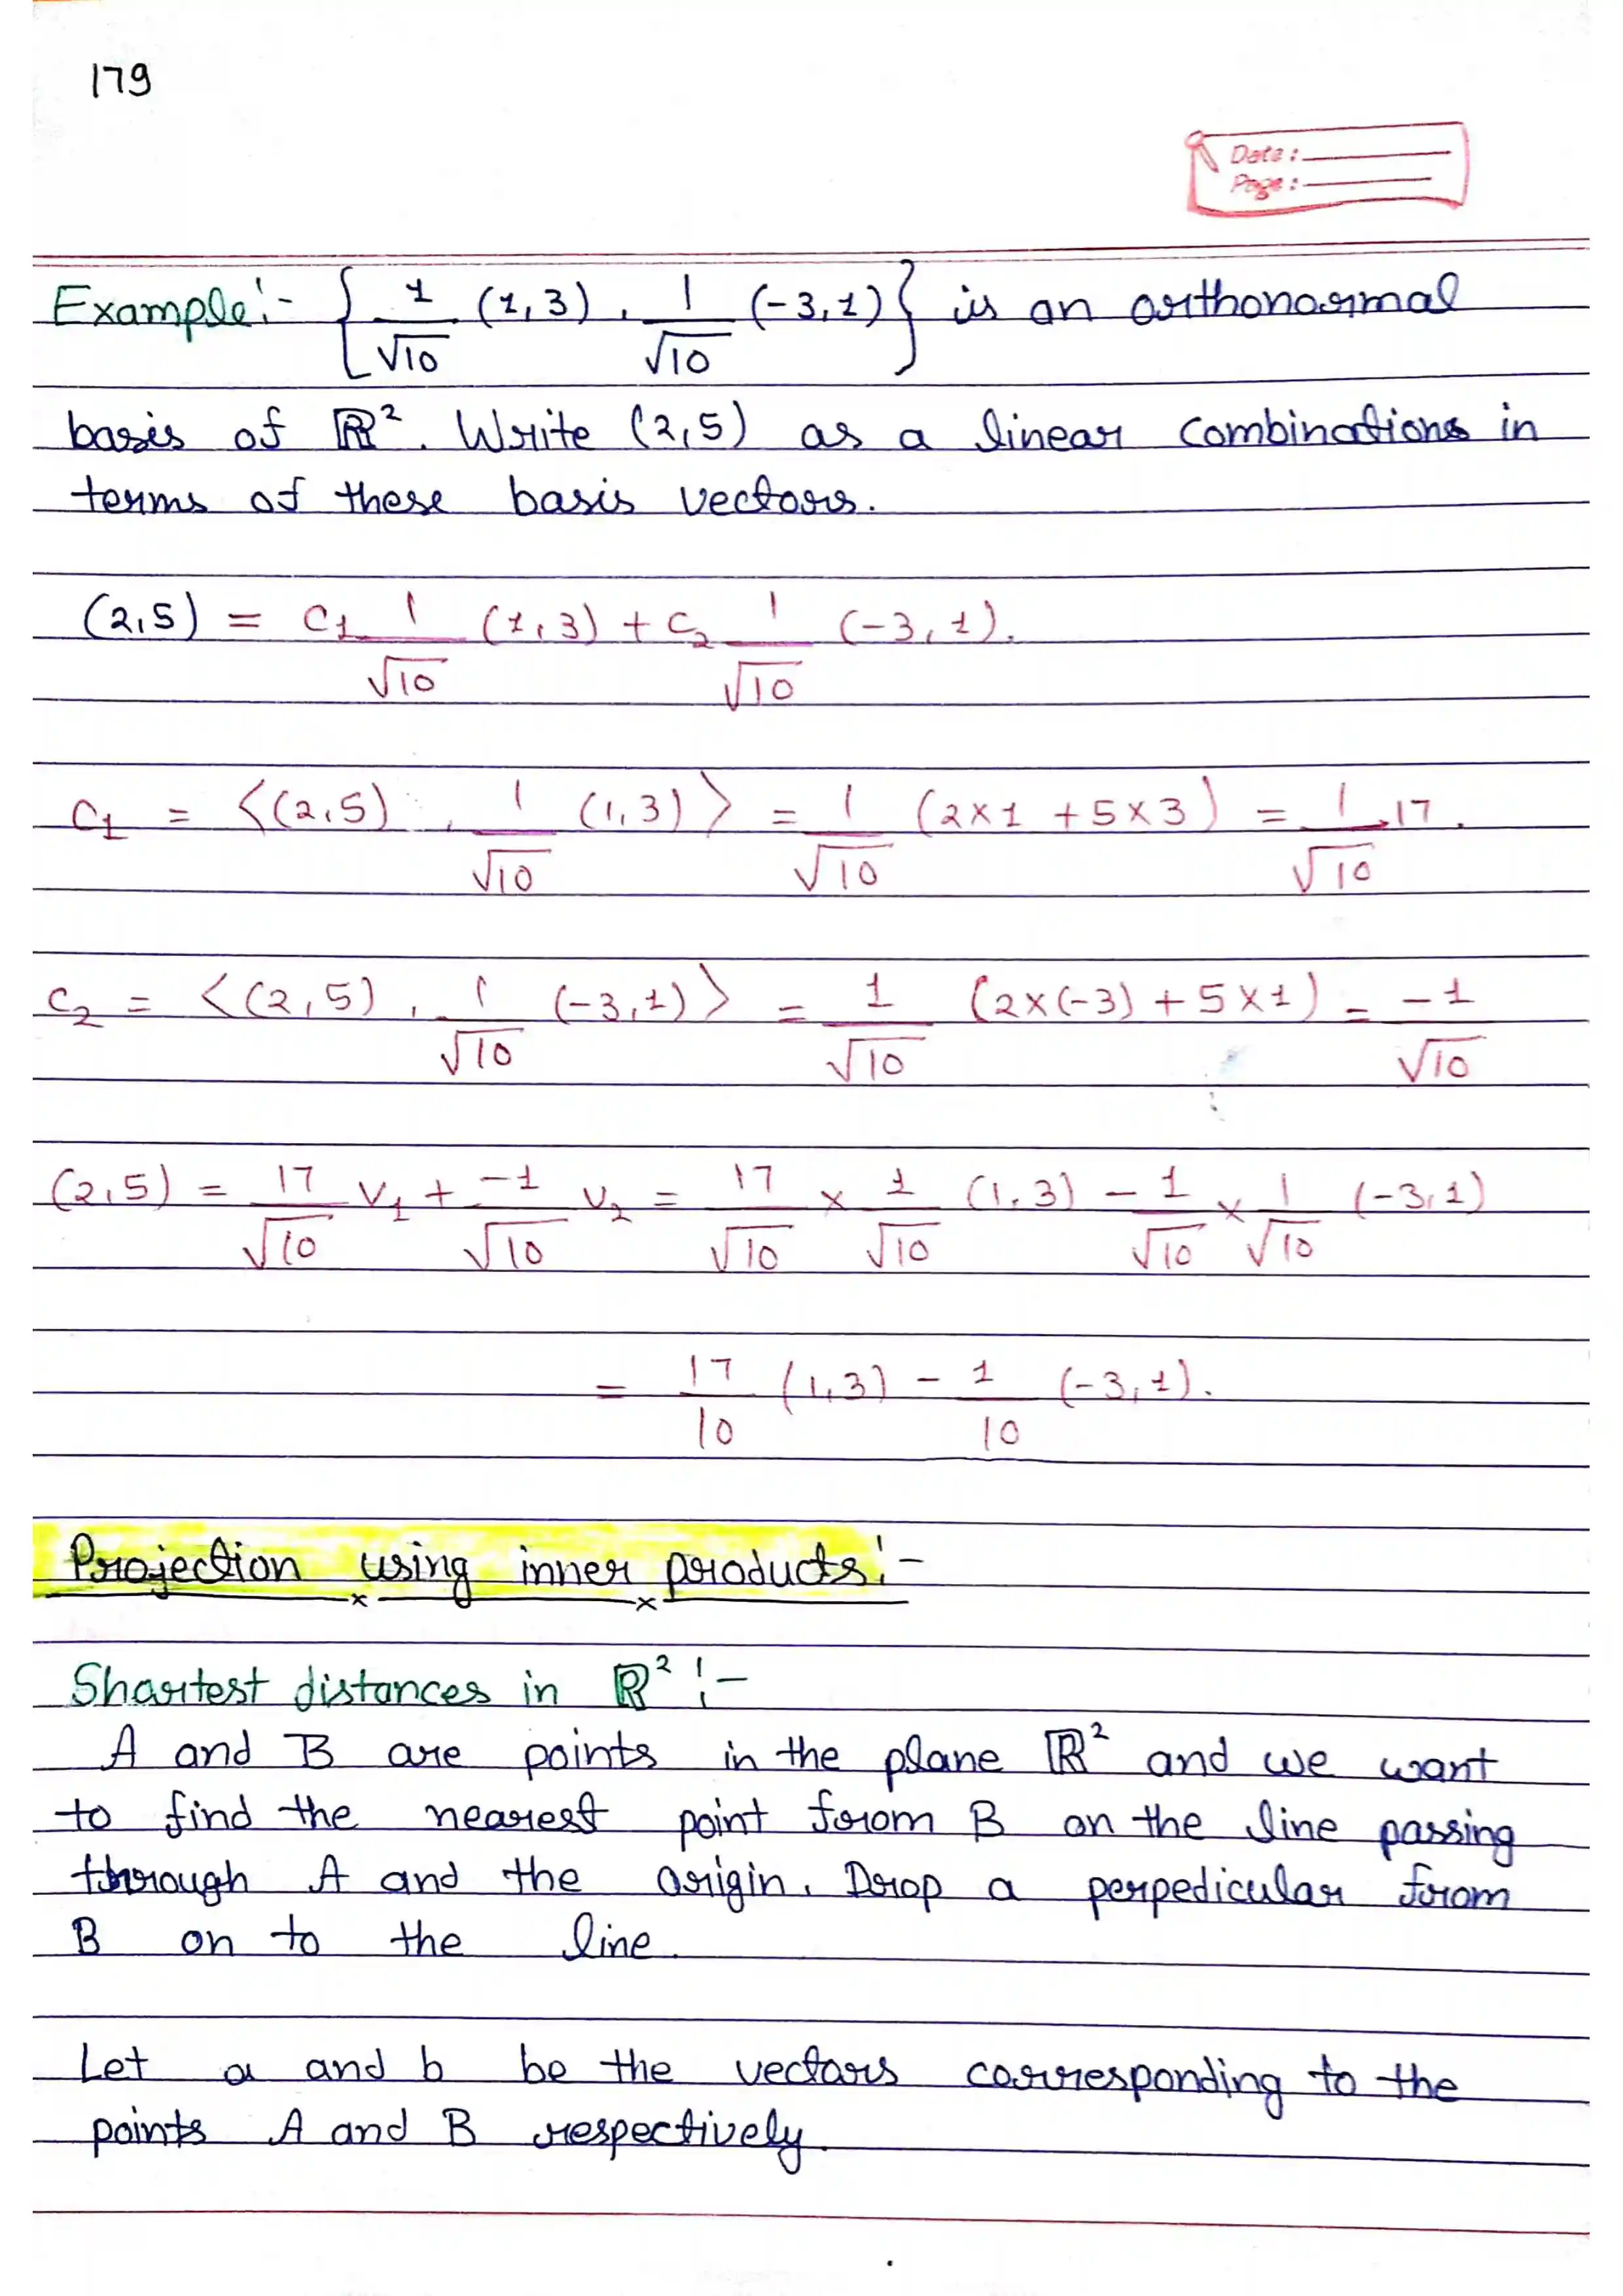 179
Date:
Page:
Example:- {1/√10 (1,3), 1/√10 (-3,1)} is an orthonormal
basis of ℝ². Write (2,5) as a linear combinations in
terms of these basis vectors.
(2,5) = C₁ 1/√10 (1,3) + C₂ 1/√10 (-3,1).
C₁ = ⟨(2,5), 1/√10 (1,3)⟩ = 1/√10 (2×1 + 5×3) = 1/√10 .17.
C₂ = ⟨(2,5), 1/√10 (-3,1)⟩ = 1/√10 (2×(-3) + 5×1) = -1/√10
(2,5) = 17/√10 V₁ + -1/√10 V₂ = 17/√10 × 1/√10 (1,3) - 1/√10 × 1/√10 (-3,1)
= 17/10 (1,3) - 1/10 (-3,1).
Projection using inner products:-
Shortest distances in ℝ² :-
A and B are points in the plane ℝ² and we want
to find the nearest point from B on the line passing
through A and the origin. Drop a perpedicular from
B on to the line.
Let a and b be the vectors corresponding to the
points A and B respectively.